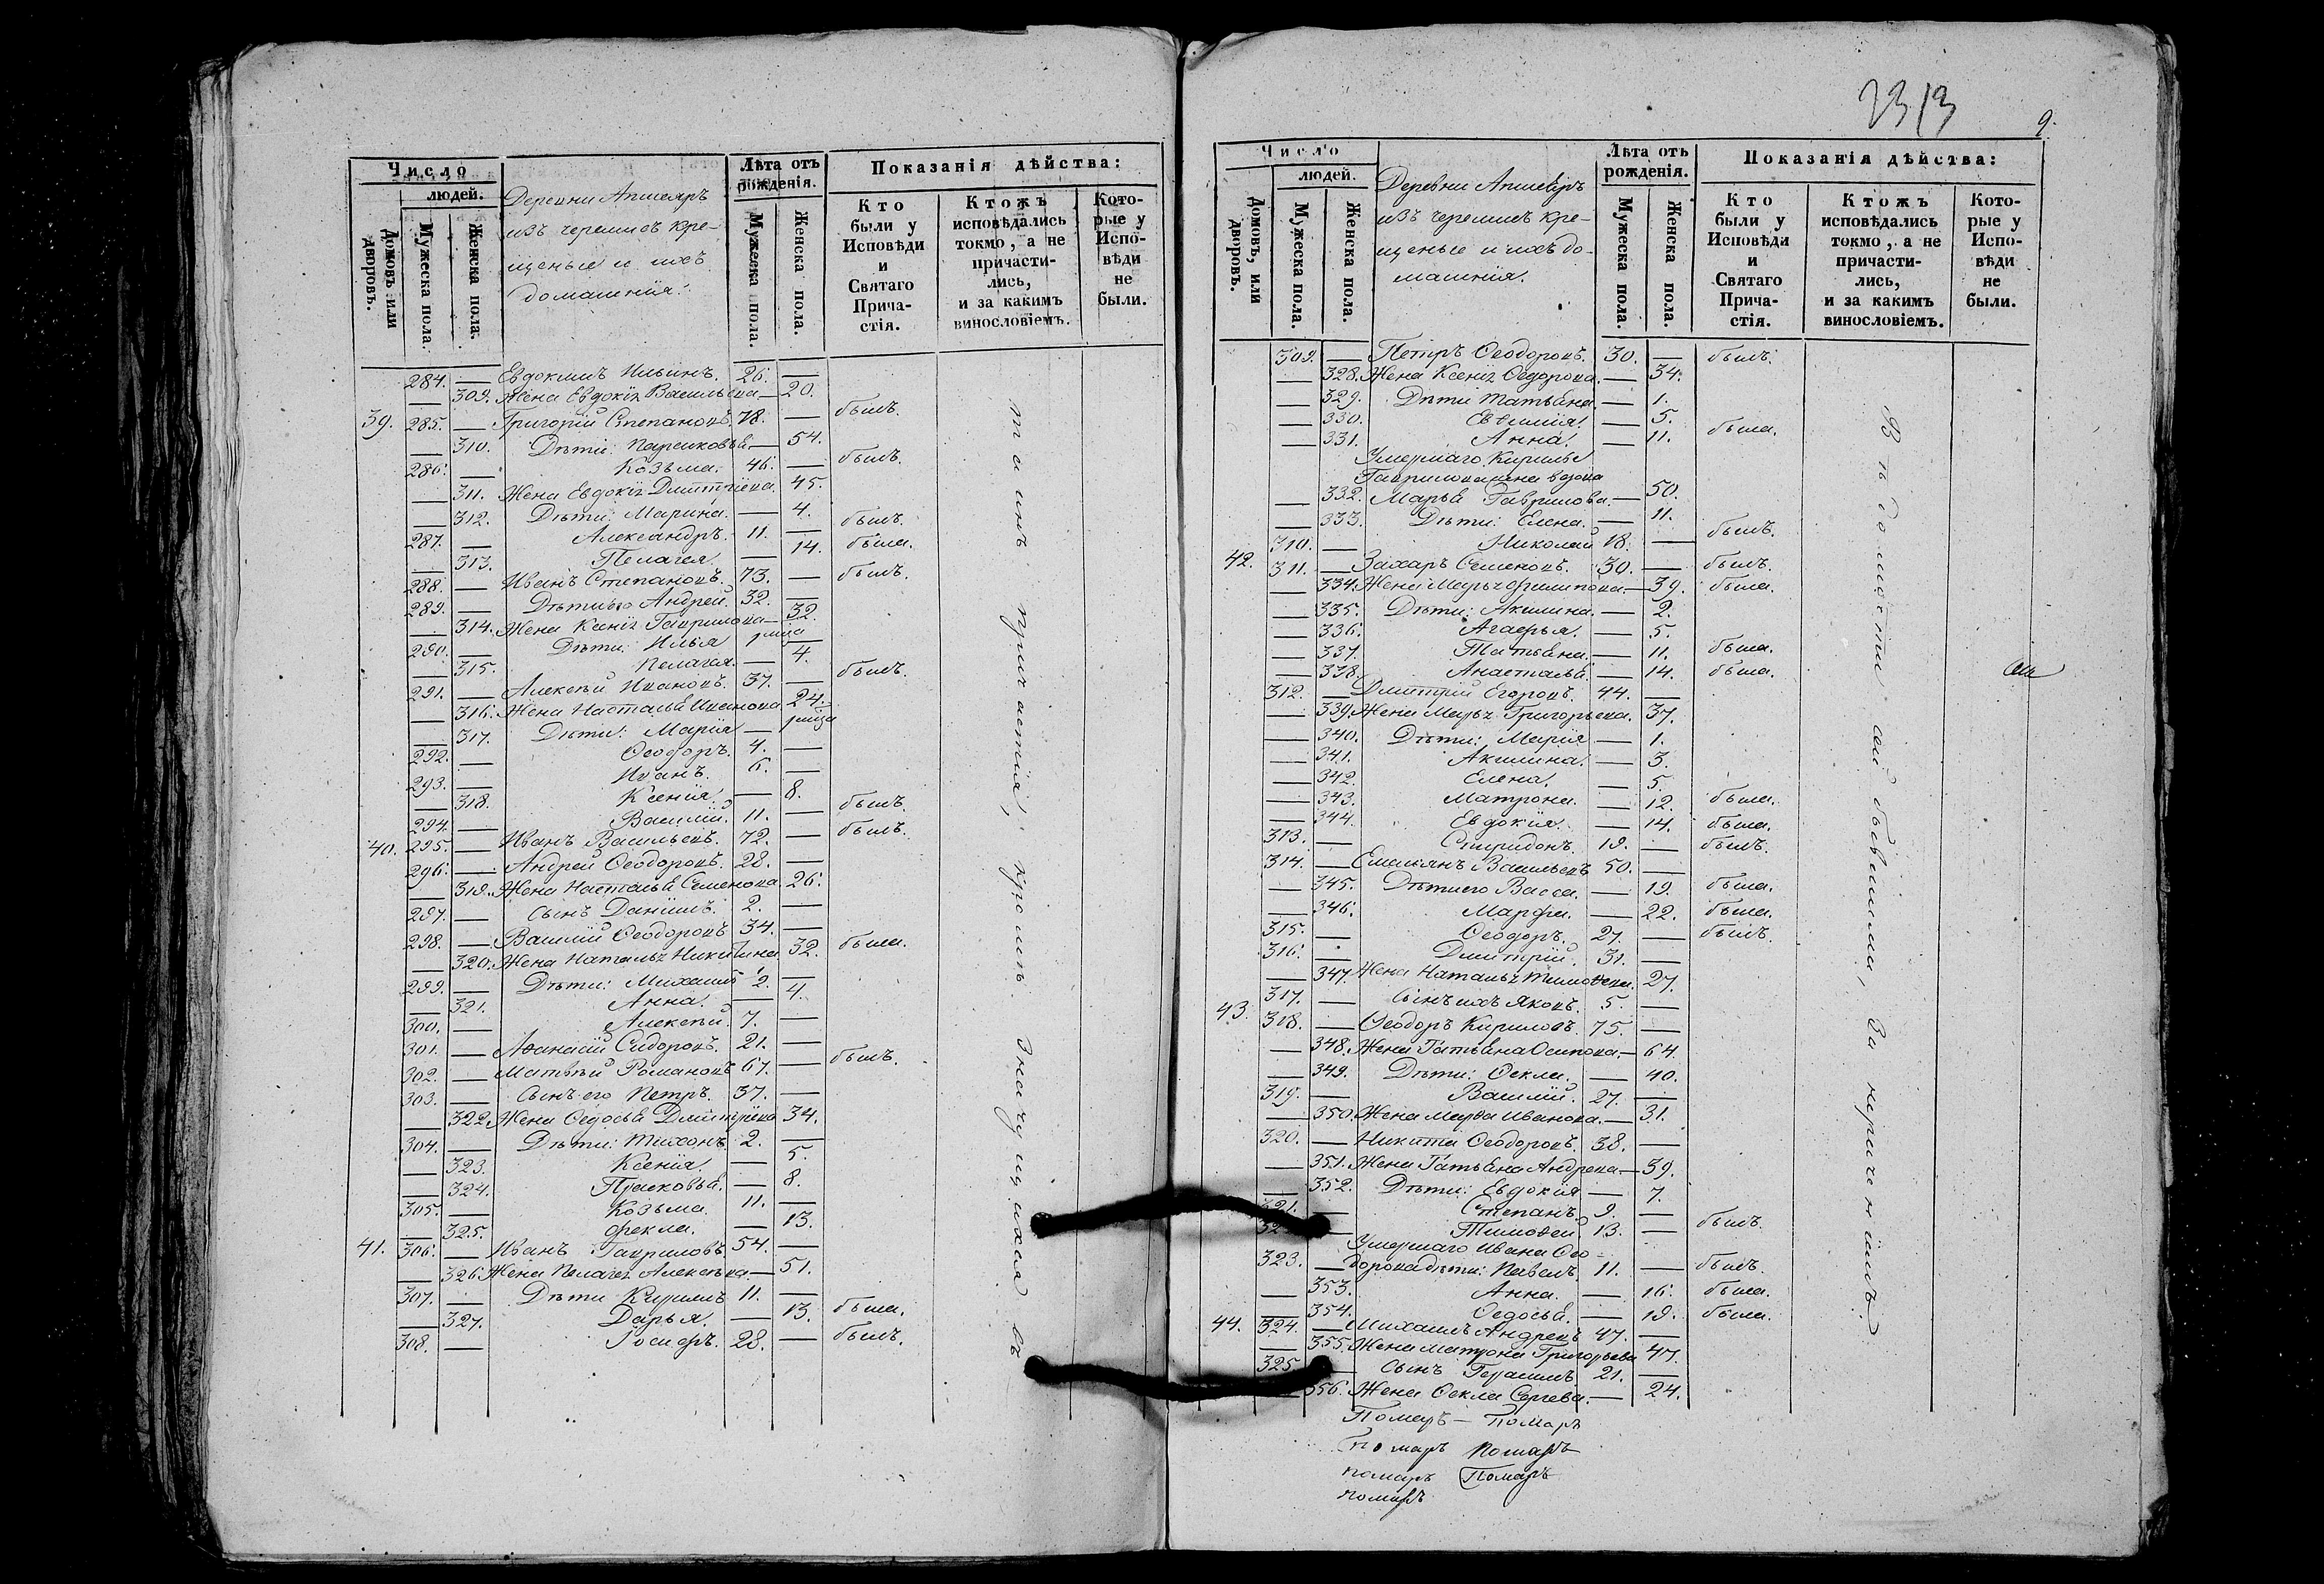 2313
9.
Число
людей.
Домовъ или дворовъ.
Мужеска пола.
Женска пола.
Деревни Апшеяръ
изъ черемисъ кре-
щеные и ихъ
домашнія.
Лѣта отъ рожденія.
Мужеска пола.
Женска пола.
Показанія дѣйства:
Кто были у Исповѣди и Святаго Прича-стія.
Ктожъ исповѣдались токмо, а не причасти-лись, и за какимъ винословіемъ.
Кото-рые у Испо-вѣди не были.
284. — Евдокимъ Ильинъ. 26. —
— 309. Жена Евдокія Васильева — 20.
39. 285. — Григорій Степановъ. 78. — былъ.
— 310. Дѣти: Парасковья — 54.
286. — Козьма. 46. — былъ.
— 311. Жена Евдокія Дмитріева. 45.
— 312. Дѣти: Марина. — 4.
287. — Александръ. 11. — былъ.
— 313. Пелагея — 14. была.
288. — Иванъ Степановъ. 73. — былъ.
289. — Дѣти его Андрей. 32. —
— 314. Жена Ксенія Гаврилова — 32.
290. — Дѣти: Илья —
— 315. Пелагея. — 4.
291. — Алексѣй Ивановъ. 37. — былъ.
— 316. Жена Настасья Иванова 24.
— 317. Дѣти: Марія —
292. — Ѳеодоръ. 4. —
293. — Иванъ. 6. —
— 318. Ксенія. — 8.
294. — Василій. 11. — былъ.
40. 295. — Иванъ Васильевъ. 72. — былъ.
296. — Андрей Ѳеодоровъ. 28. —
— 319. Жена Настасья Семенова. 26.
297. — Сынъ Даніилъ. 2. —
298. — Василій Ѳеодоровъ 34. —
— 320. Жена Наталья Никитина 32. была.
299. — Дѣти: Михаилъ 2. —
— 321. Анна. — 4.
300. — Алексѣй. 7. —
301. — Аѳанасій Сидоровъ. 21. —
302. — Матвѣй Романовъ 67. — былъ.
303. — Сынъ его Петръ. 37. —
— 322. Жена Ѳедосья Дмитріева 34.
304. — Дѣти: Тихонъ 2. —
— 323. Ксенія. — 5.
— 324. Прасковья. — 8.
305. — Козьма 11. —
— 325. Фекла. — 13.
41. 306. — Иванъ Гавриловъ. 54. —
— 326. Жена Пелагея Алексѣева — 51.
307. — Дѣти Кирилъ 11. —
— 327. Дарья. — 13. была.
308. — Іосифъ. 28. — былъ.
таинъ причастія, кромѣ значущихся въ
Число
людей.
Домовъ, или дворовъ.
Мужеска пола.
Женска пола.
Деревни Апшеяръ
изъ черемисъ кре-
щеные и ихъ до-
машнія.
Лѣта отъ рожденія.
Мужеска пола.
Женска пола.
Показанія дѣйства:
Кто были у Исповѣди и Святаго Прича-стія.
Ктожъ исповѣдались токмо, а не причасти-лись, и за какимъ винословіемъ.
Кото-рые у Испо-вѣди не были.
309. — Петръ Ѳеодоровъ. 30. — былъ.
— 328. Жена Ксенія Ѳедорова. — 34.
— 329. Дѣти Татьяна. — 1.
— 330. Евѳимія. — 5.
— 331. Анна. — 11. была.
Умершаго Кирилы
Гавриловича вдова
— 332. Марья Гаврилова. — 50.
— 333. Дѣти: Елена. — 11.
310. — Николай 18. — былъ.
42. 311. — Захаръ Семеновъ. 30. — былъ.
— 334. Жена Марья Филипова — 39. была.
— 335. Дѣти: Акилина. — 2.
— 336. Агафья. — 5.
— 337. Татьяна. — 11. была.
— 338. Анастасья. — 14. была.
312. — Дмитрій Егоровъ. 44. —
— 339. Жена Марья Григорьева. 37.
— 340. Дѣти: Марія — 1.
— 341. Акилина. — 3.
— 342. Елена. — 5.
— 343. Матрона. — 12. была.
— 344. Евдокія. — 14. была.
313. — Спиридонъ. 19. — былъ.
314. — Емельянъ Васильевъ 50. —
— 345. Дѣти его Васса. — 19. была.
— 346. Марфа. — 22. была.
315. — Ѳеодоръ. 27. — былъ.
316. — Дмитрій. 31. —
— 347. Жена Наталья Тимоѳеева. 27.
317. — Сынъ ихъ Яковъ. 5. —
43. 318. — Ѳеодоръ Кириловъ. 75. —
— 348. Жена Татьяна Осипова — 64.
— 349. Дѣти: Ѳекла. — 40.
319. — Василій. 27. —
— 350. Жена Марѳа Иванова. — 31.
320. — Никита Ѳеодоровъ. 38. —
— 351. Жена Татьяна Андреева — 39.
— 352. Дѣти: Евдокія — 7.
321. — Степанъ. 9. —
32 — Тимоѳей. 13. — былъ.
Умершаго Ивана Ѳео-
323. — дорова дѣти: Павелъ. 11. — былъ.
— 353. Анна. — 16. была.
— 354. Ѳедосья. — 19. была.
44. 324. — Михаилъ Андреевъ 47. —
— 355. Жена Матрона Григорьева 47.
325 Сынъ Герасимъ. 21. —
— 356. Жена Ѳекла Сергѣева. — 24.
Помаръ — Помаръ
помаръ помаръ
помаръ Помаръ
помаръ